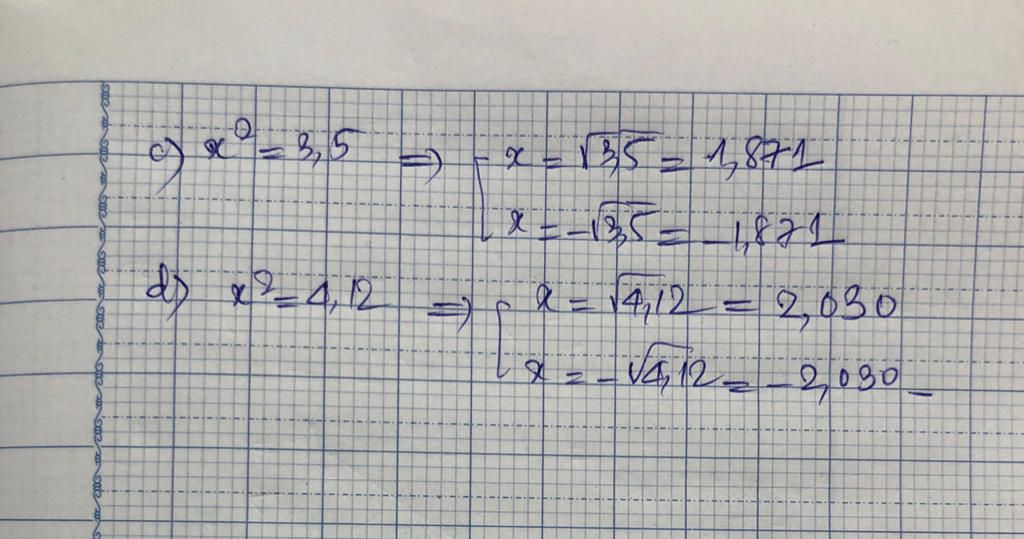 c) x² = 3,5 => [ x = √3,5 = 1,871
x = -√3,5 = -1,871
d) x² = 4,12 => [ x = √4,12 = 2,030
x = -√4,12 = -2,030 -